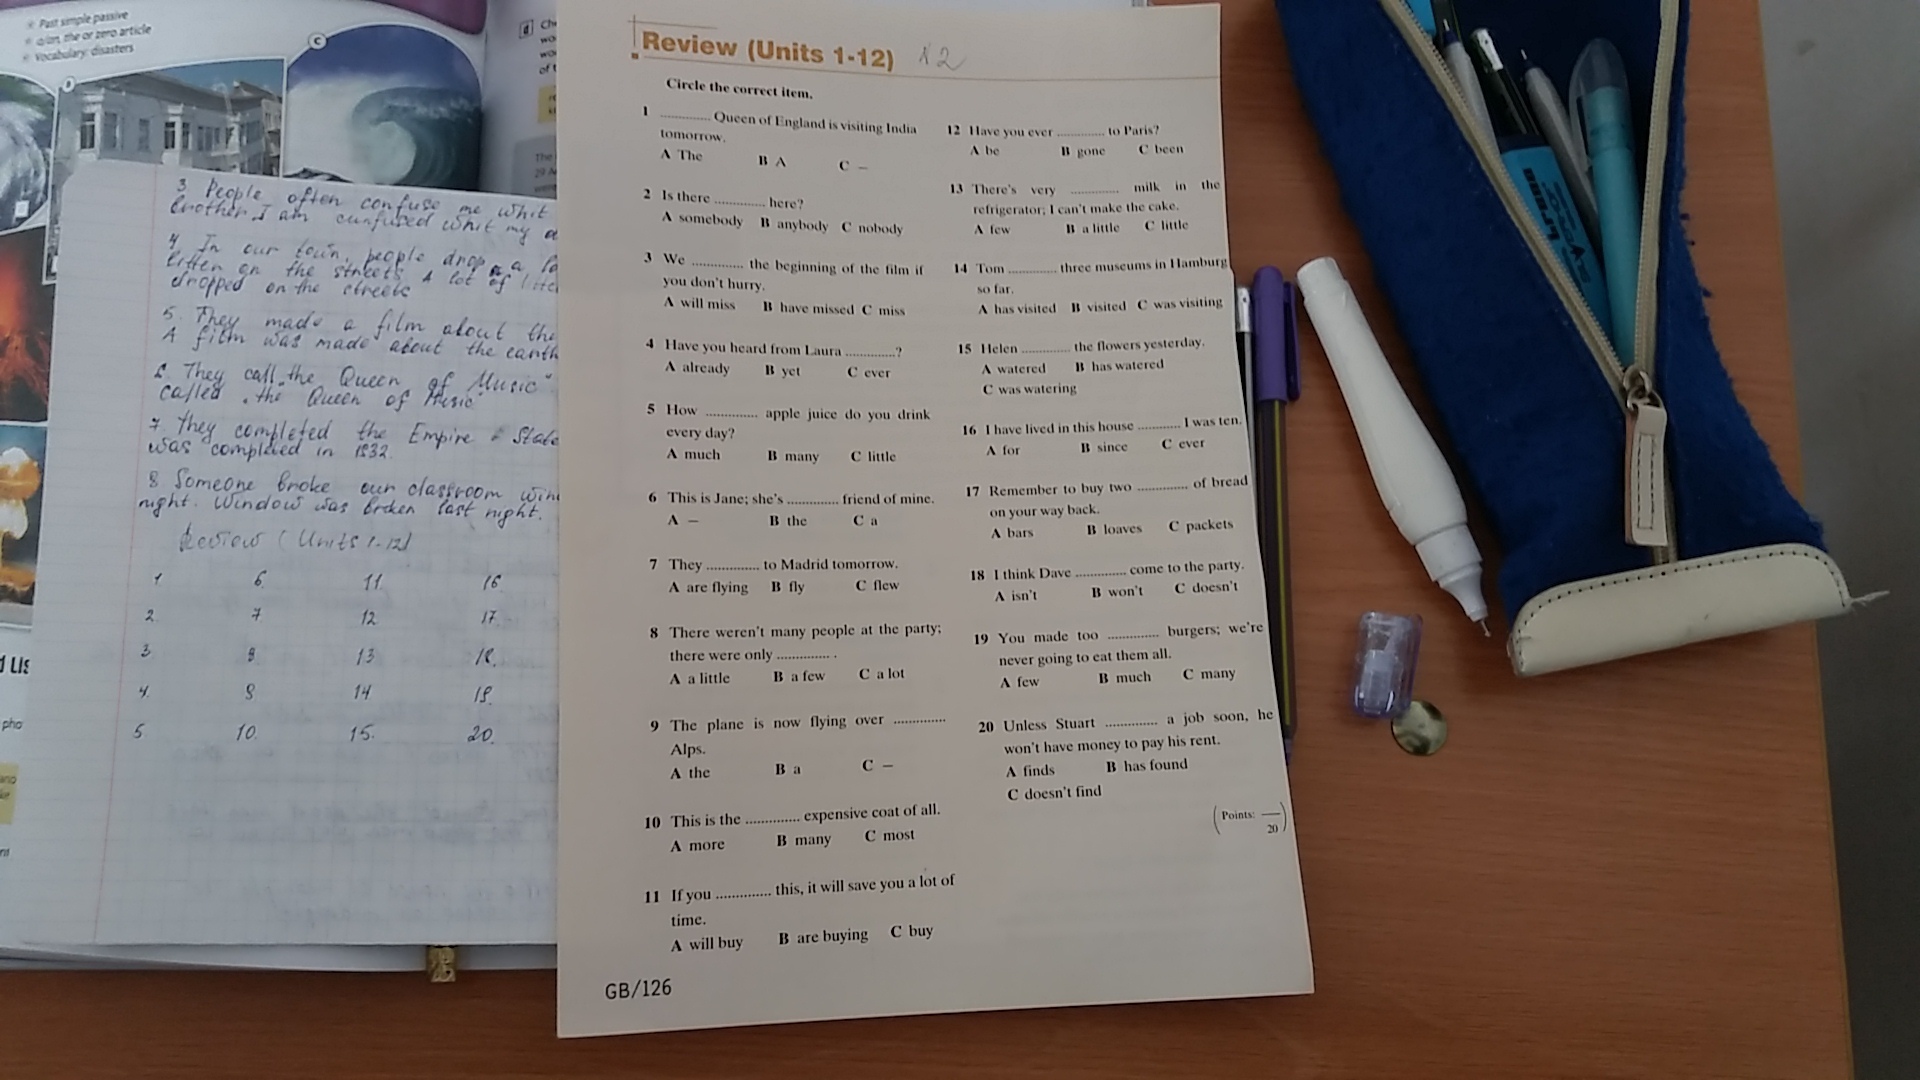 Past simple passive
a/an, the or zero article
Vocabulary: disasters
C
d Ch
3 People often confuse me whit
brother. I am cunfused whit my
4. In our town, people drop a
litter on the streets. A lot of
dropped on the streets
5. They made a film about the
A film was made about the earth
6. They call "the Queen of Music"
called "the Queen of Music"
7 They completed the Empire State
was completed in 1932.
8. Someone broke our classroom
night. Window was broken last night.
Review (Units 1-12)
1 6 11 16
2 7 12 17
3 8 13 18
4. 9 14 19.
5 10. 15. 20.
Review (Units 1-12)
Circle the correct item.
1 ............. Queen of England is visiting India
tomorrow.
A The B A C –
2 Is there ............. here?
A somebody B anybody C nobody
3 We ............. the beginning of the film if
you don't hurry.
A will miss B have missed C miss
4 Have you heard from Laura .............?
A already B yet C ever
5 How ............. apple juice do you drink
every day?
A much B many C little
6 This is Jane; she's ............. friend of mine.
A – B the C a
7 They ............. to Madrid tomorrow.
A are flying B fly C flew
8 There weren't many people at the party;
there were only ............. .
A a little B a few C a lot
9 The plane is now flying over .............
Alps.
A the B a C –
10 This is the ............. expensive coat of all.
A more B many C most
11 If you ............. this, it will save you a lot of
time.
A will buy B are buying C buy
12 Have you ever ............. to Paris?
A be B gone C been
13 There's very ............. milk in the
refrigerator; I can't make the cake.
A few B a little C little
14 Tom ............. three museums in Hamburg
so far.
A has visited B visited C was visiting
15 Helen ............. the flowers yesterday.
A watered B has watered
C was watering
16 I have lived in this house ............. I was ten.
A for B since C ever
17 Remember to buy two ............. of bread
on your way back.
A bars B loaves C packets
18 I think Dave ............. come to the party.
A isn't B won't C doesn't
19 You made too ............. burgers; we're
never going to eat them all.
A few B much C many
20 Unless Stuart ............. a job soon, he
won't have money to pay his rent.
A finds B has found
C doesn't find
(Points: __ )
20
GB/126